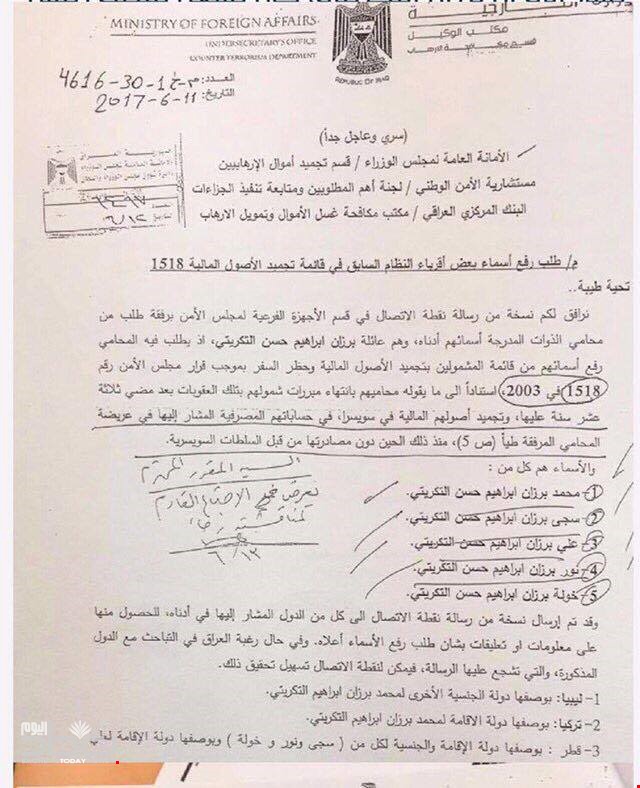 MINISTRY OF FOREIGN AFFAIRS
UNDERSECRETARY'S OFFICE
COUNTER TERRORISM DEPARTMENT
REPUBLIC OF IRAQ
مكتب الوكيل
العدد:
4616-30-1
التاريخ:
2017-6-11
(سري وعاجل جداً)
الأمانة العامة لمجلس الوزراء / قسم تجميد أموال الإرهابيين
مستشارية الأمن الوطني / لجنة أهم المطلوبين ومتابعة تنفيذ الجزاءات
البنك المركزي العراقي / مكتب مكافحة غسل الأموال وتمويل الارهاب
م/ طلب رفع أسماء بعض أقرباء النظام السابق في قائمة تجميد الأصول المالية 1518
تحية طيبة..
نرافق لكم نسخة من رسالة نقطة الاتصال في قسم الأجهزة الفرعية لمجلس الأمن برفقة طلب من
محامي الذوات المدرجة أسمائهم أدناه، وهم عائلة برزان ابراهيم حسن التكريتي، اذ يطلب فيه المحامي
رفع أسمائهم من قائمة المشمولين بتجميد الأصول المالية وحظر السفر بموجب قرار مجلس الأمن رقم
1518 في 2003، استناداً الى ما يقوله محاميهم بانتهاء مبررات شمولهم بتلك العقوبات بعد مضي ثلاثة
عشر سنة عليها، وتجميد أصولهم المالية في سويسرا، في حساباتهم المصرفية المشار إليها في عريضة
المحامي المرفقة طياً (ص 5)، منذ ذلك الحين دون مصادرتها من قبل السلطات السويسرية.
والأسماء هم كل من :
السيد المقرر المحترم
يعرض في الاجتماع القادم
1- محمد برزان ابراهيم حسن التكريتي.
2- سجى برزان ابراهيم حسن التكريتي.
3- علي برزان ابراهيم حسن التكريتي.
4- نور برزان ابراهيم حسن التكريتي.
5- خولة برزان ابراهيم حسن التكريتي.
وقد تم إرسال نسخة من رسالة نقطة الاتصال الى كل من الدول المشار إليها في أدناه، للحصول منها
على معلومات او تعليقات بشان طلب رفع الأسماء أعلاه. وفي حال رغبة العراق في التباحث مع الدول
المذكورة، والتي تشجع عليها الرسالة، فيمكن لنقطة الاتصال تسهيل تحقيق ذلك.
1- ليبيا: بوصفها دولة الجنسية الأخرى لمحمد برزان ابراهيم التكريتي.
2- تركيا: بوصفها دولة الاقامة لمحمد برزان ابراهيم التكريتي.
3- قطر : بوصفها دولة الإقامة والجنسية لكل من ( سجى ونور و خولة ) وبوصفها دولة الإقامة
اليوم
TODAY